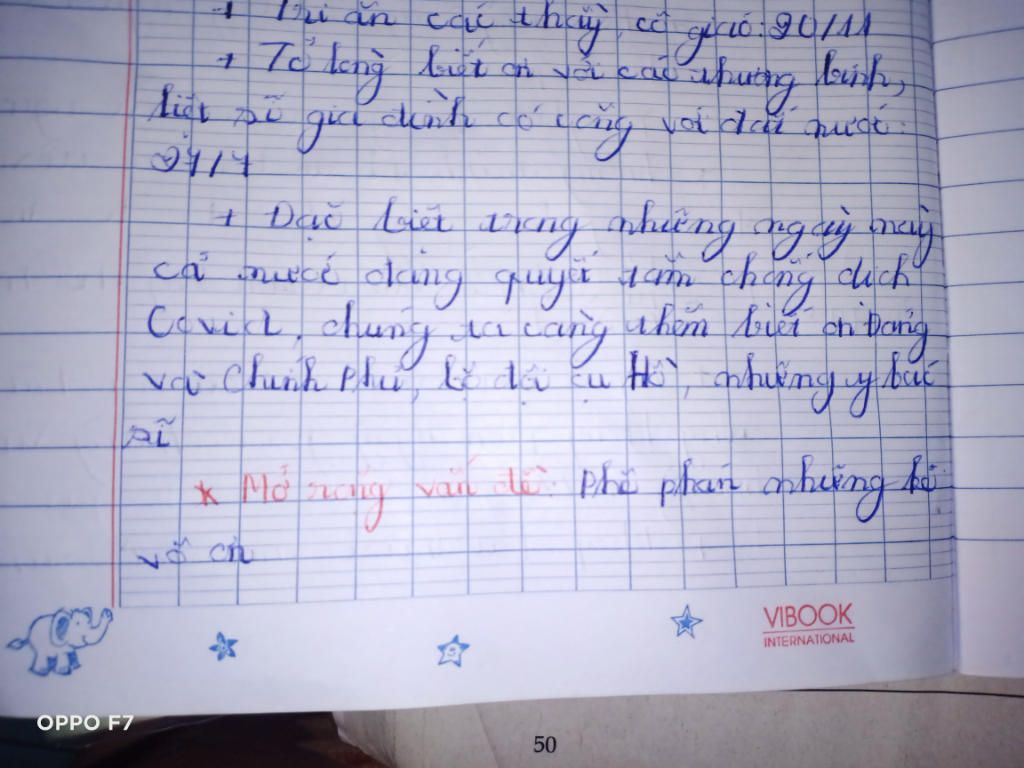 + Tri ân các thầy, cô giáo: 20/11
+ Tỏ lòng biết ơn với các thương binh,
liệt sĩ gia đình có công với đất nước:
27/7
+ Đặc biệt trong những ngày này
cả nước đang quyết tâm chống dịch
Covid, chúng ta càng thêm biết ơn Đảng
và Chính Phủ, bộ đội cụ Hồ, những y bác
sĩ
* Mở rộng vấn đề: Phê phán những kẻ
vô ơn
VIBOOK
INTERNATIONAL
OPPO F7
50